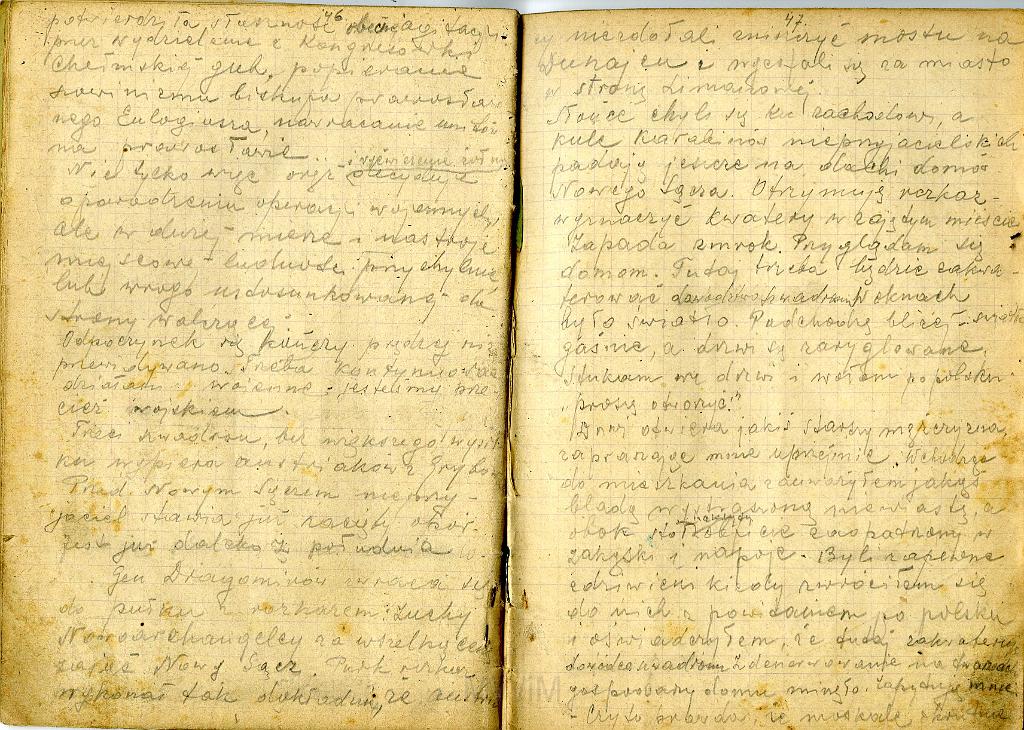 46.
potwierdziła słuszność agitacji
przez wydzielenie z Kongresówki
Chełmskiej gub., popieranie
szowinizmu biskupa prawosław
nego Eulogiusza, nawracanie unitów
na prawosławie
Nie tylko więc oręż decyduje
o powodzeniu operacji wojennych,
ale w dużej mierze i nastroje
miejscowej ludności przychylnie
lub wrogo ustosunkowanej do
strony walczącej.
Odpoczynek się kończy prędzej niż
przewidywano. Trzeba kontynuować
działania wojenne - jesteśmy prze
cież wojskiem.
Trzeci szwadron, bez większego wysił
ku wypiera austriaków z Grybowa
Przed Nowym Sączem nieprzy-
jaciel stawia już zacięty opór.
Jest już daleko z południa
Gen Dragomirow zwraca się
do pułku z rozkazem: zuchy
Nowoarchangielcy za wszelką cenę
zająć Nowy Sącz. Pułk rozkaz
wykonał tak dokładnie, że austria
47.
cy nie zdołali zniszczyć mostu na
Dunajcu i wycofali się za miasto
w stronę Limanowej.
Słońce chyli się ku zachodowi, a
kule karabinów nieprzyjacielskich
padają jeszcze na dachi domów
Nowego Sącza. Otrzymuję rozkaz -
wyznaczyć kwatery w zajętym mieście
Zapada zmrok. Przyglądam się
domom. Tutaj trzeba będzie zakwa-
terować dowództwo szwadronu. W oknach
było światło. Podchodzę bliżej - światło
gaśnie, a drzwi są zaryglowane.
Stukam we drzwi i wołam po polsku
„proszę otworzyć!"
Drzwi otwiera jakiś starszy mężczyzna,
zapraszając mnie uprzejmie. Wchodząc
do mieszkania zauważyłem jakąś
bladą wystraszoną niewiastę, a
obok stół obficie zaopatrzony w
zakąski i napoje. Byli zapewne
zdziwieni kiedy zwróciłem się
do nich z powitaniem po polsku
i oświadczyłem, że tutaj zakwateruje
dowódca szwadronu. Zdenerwowanie na twarzach
gospodarzy domu minęło. Zapytują mnie
- Czy to prawda, że moskale okrutnie